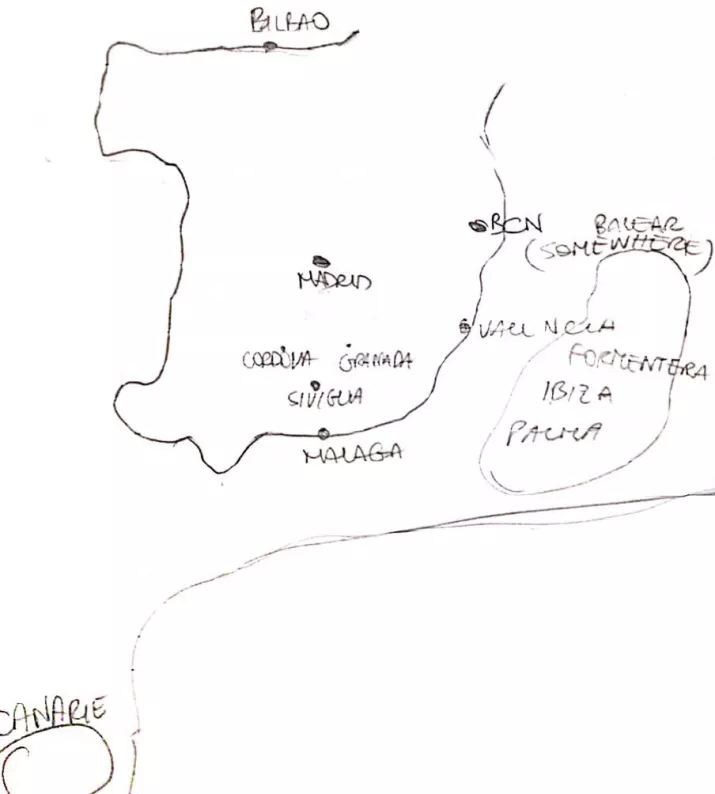 BILBAO
BCN
BALEAR
(SOMEWHERE)
MADRID
VALENCIA
CORDOVA GRANADA
FORMENTERA
SIVIGLIA
IBIZA
PALMA
MALAGA
CANARIE